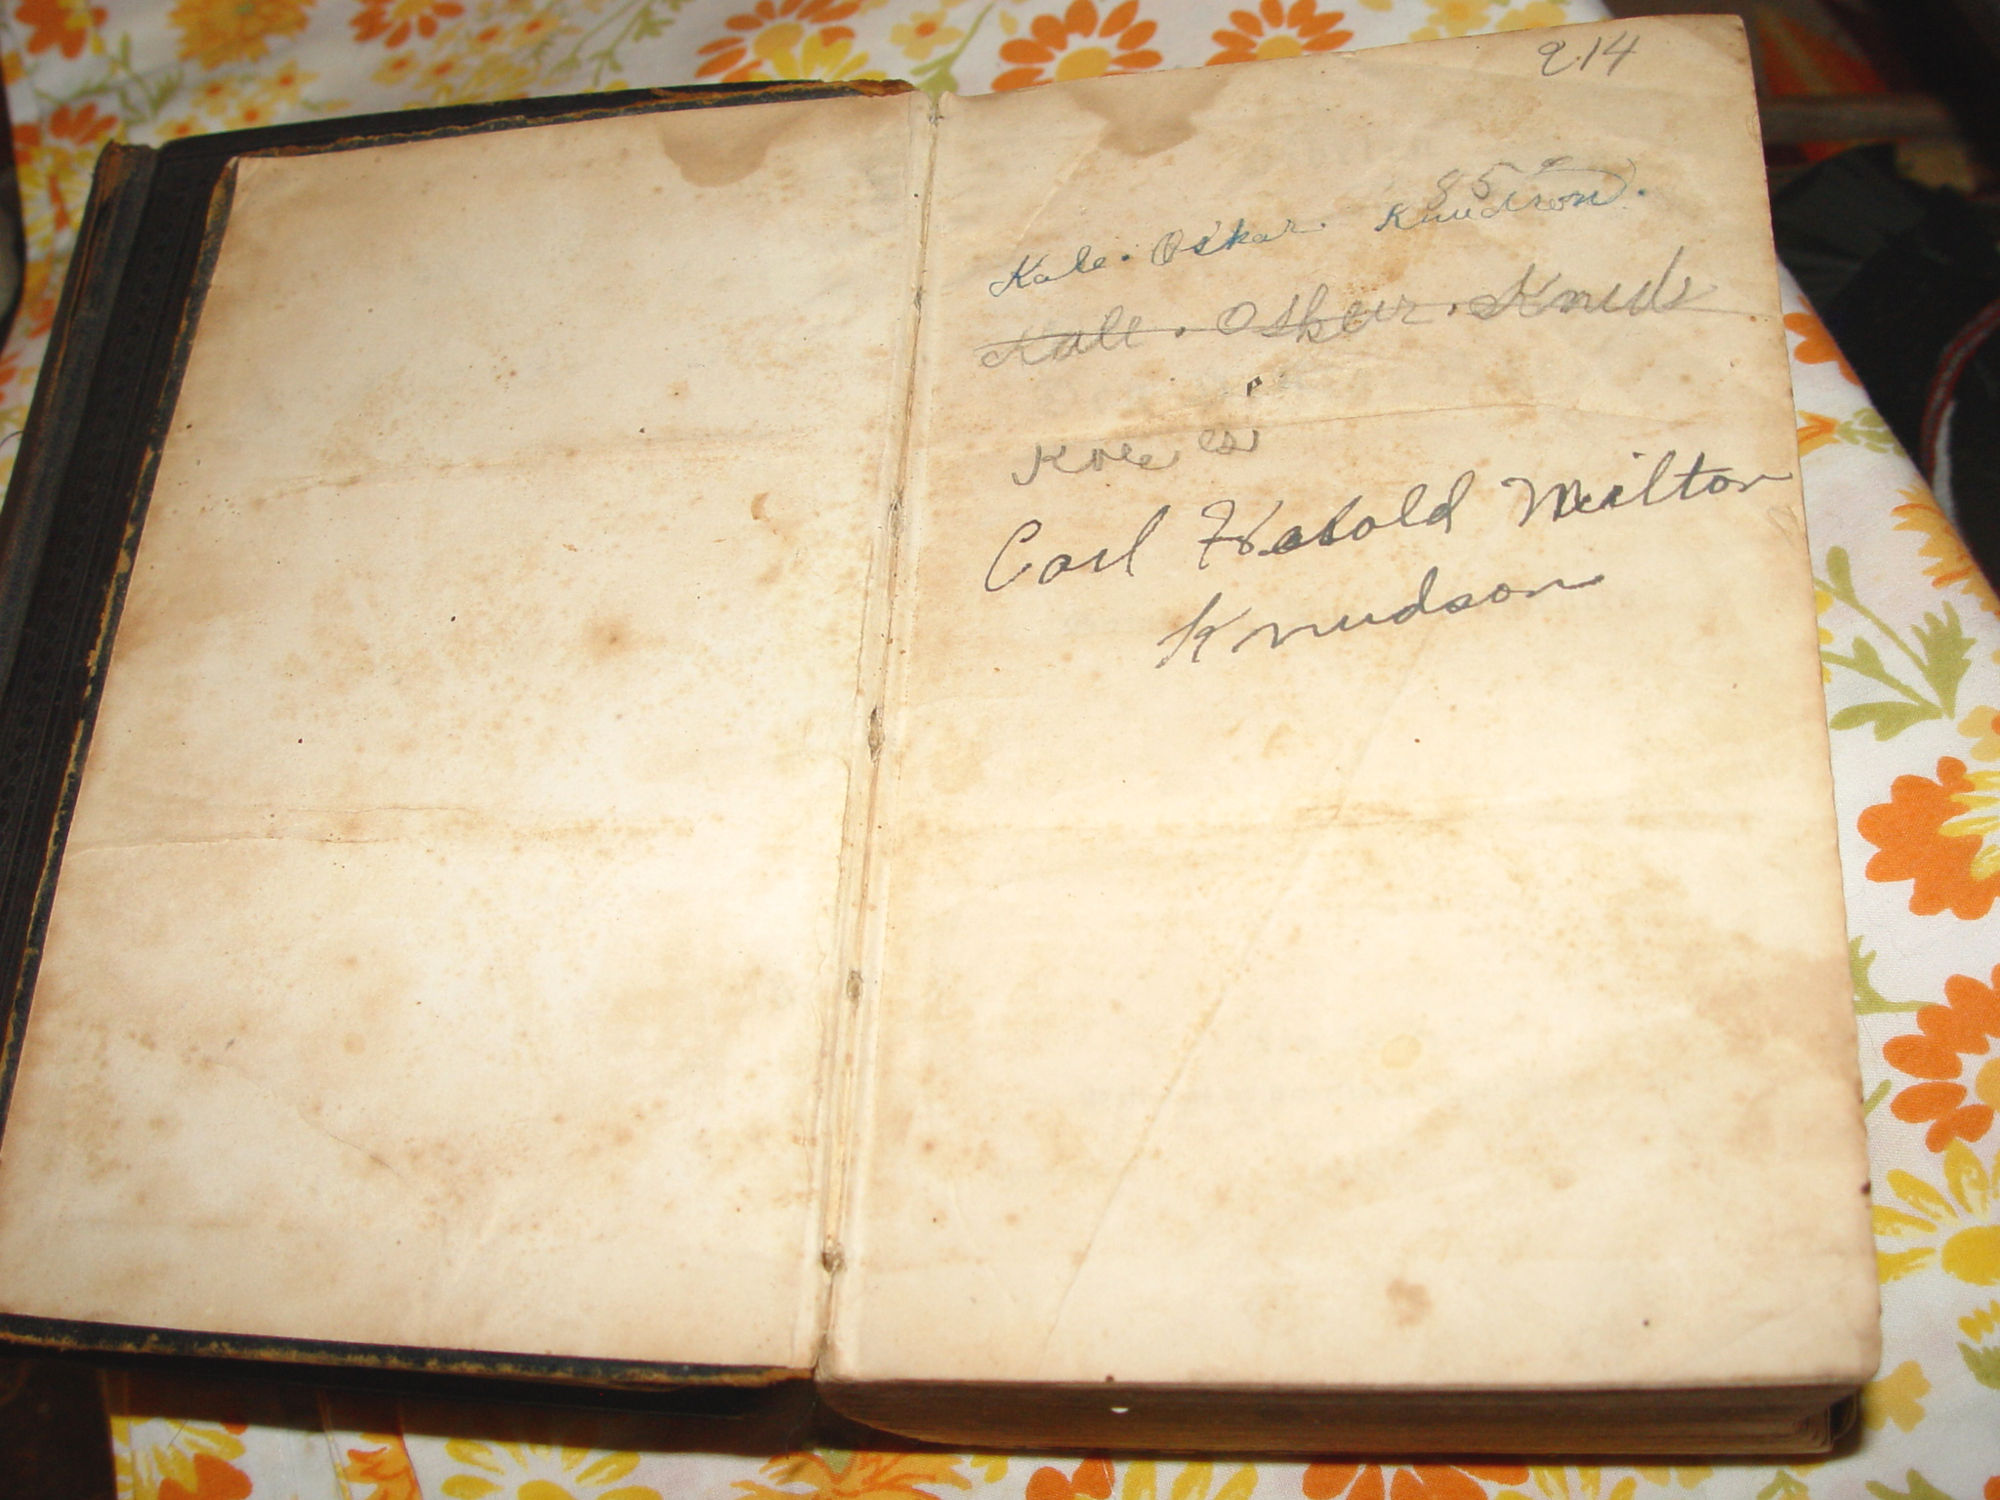 214
85
Kale. Oskar. Knudson.
Kale. Oskar. Knuds
Carl Harold Milton
Knudson